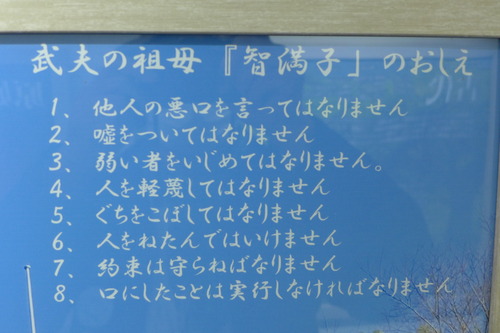 武夫の祖母『智満子』のおしえ
1、他人の悪口を言ってはなりません
2、嘘をついてはなりません
3、弱い者をいじめてはなりません。
4、人を軽蔑してはなりません
5、ぐちをこぼしてはなりません
6、人をねたんではいけません
7、約束は守らねばなりません
8、口にしたことは実行しなければなりません